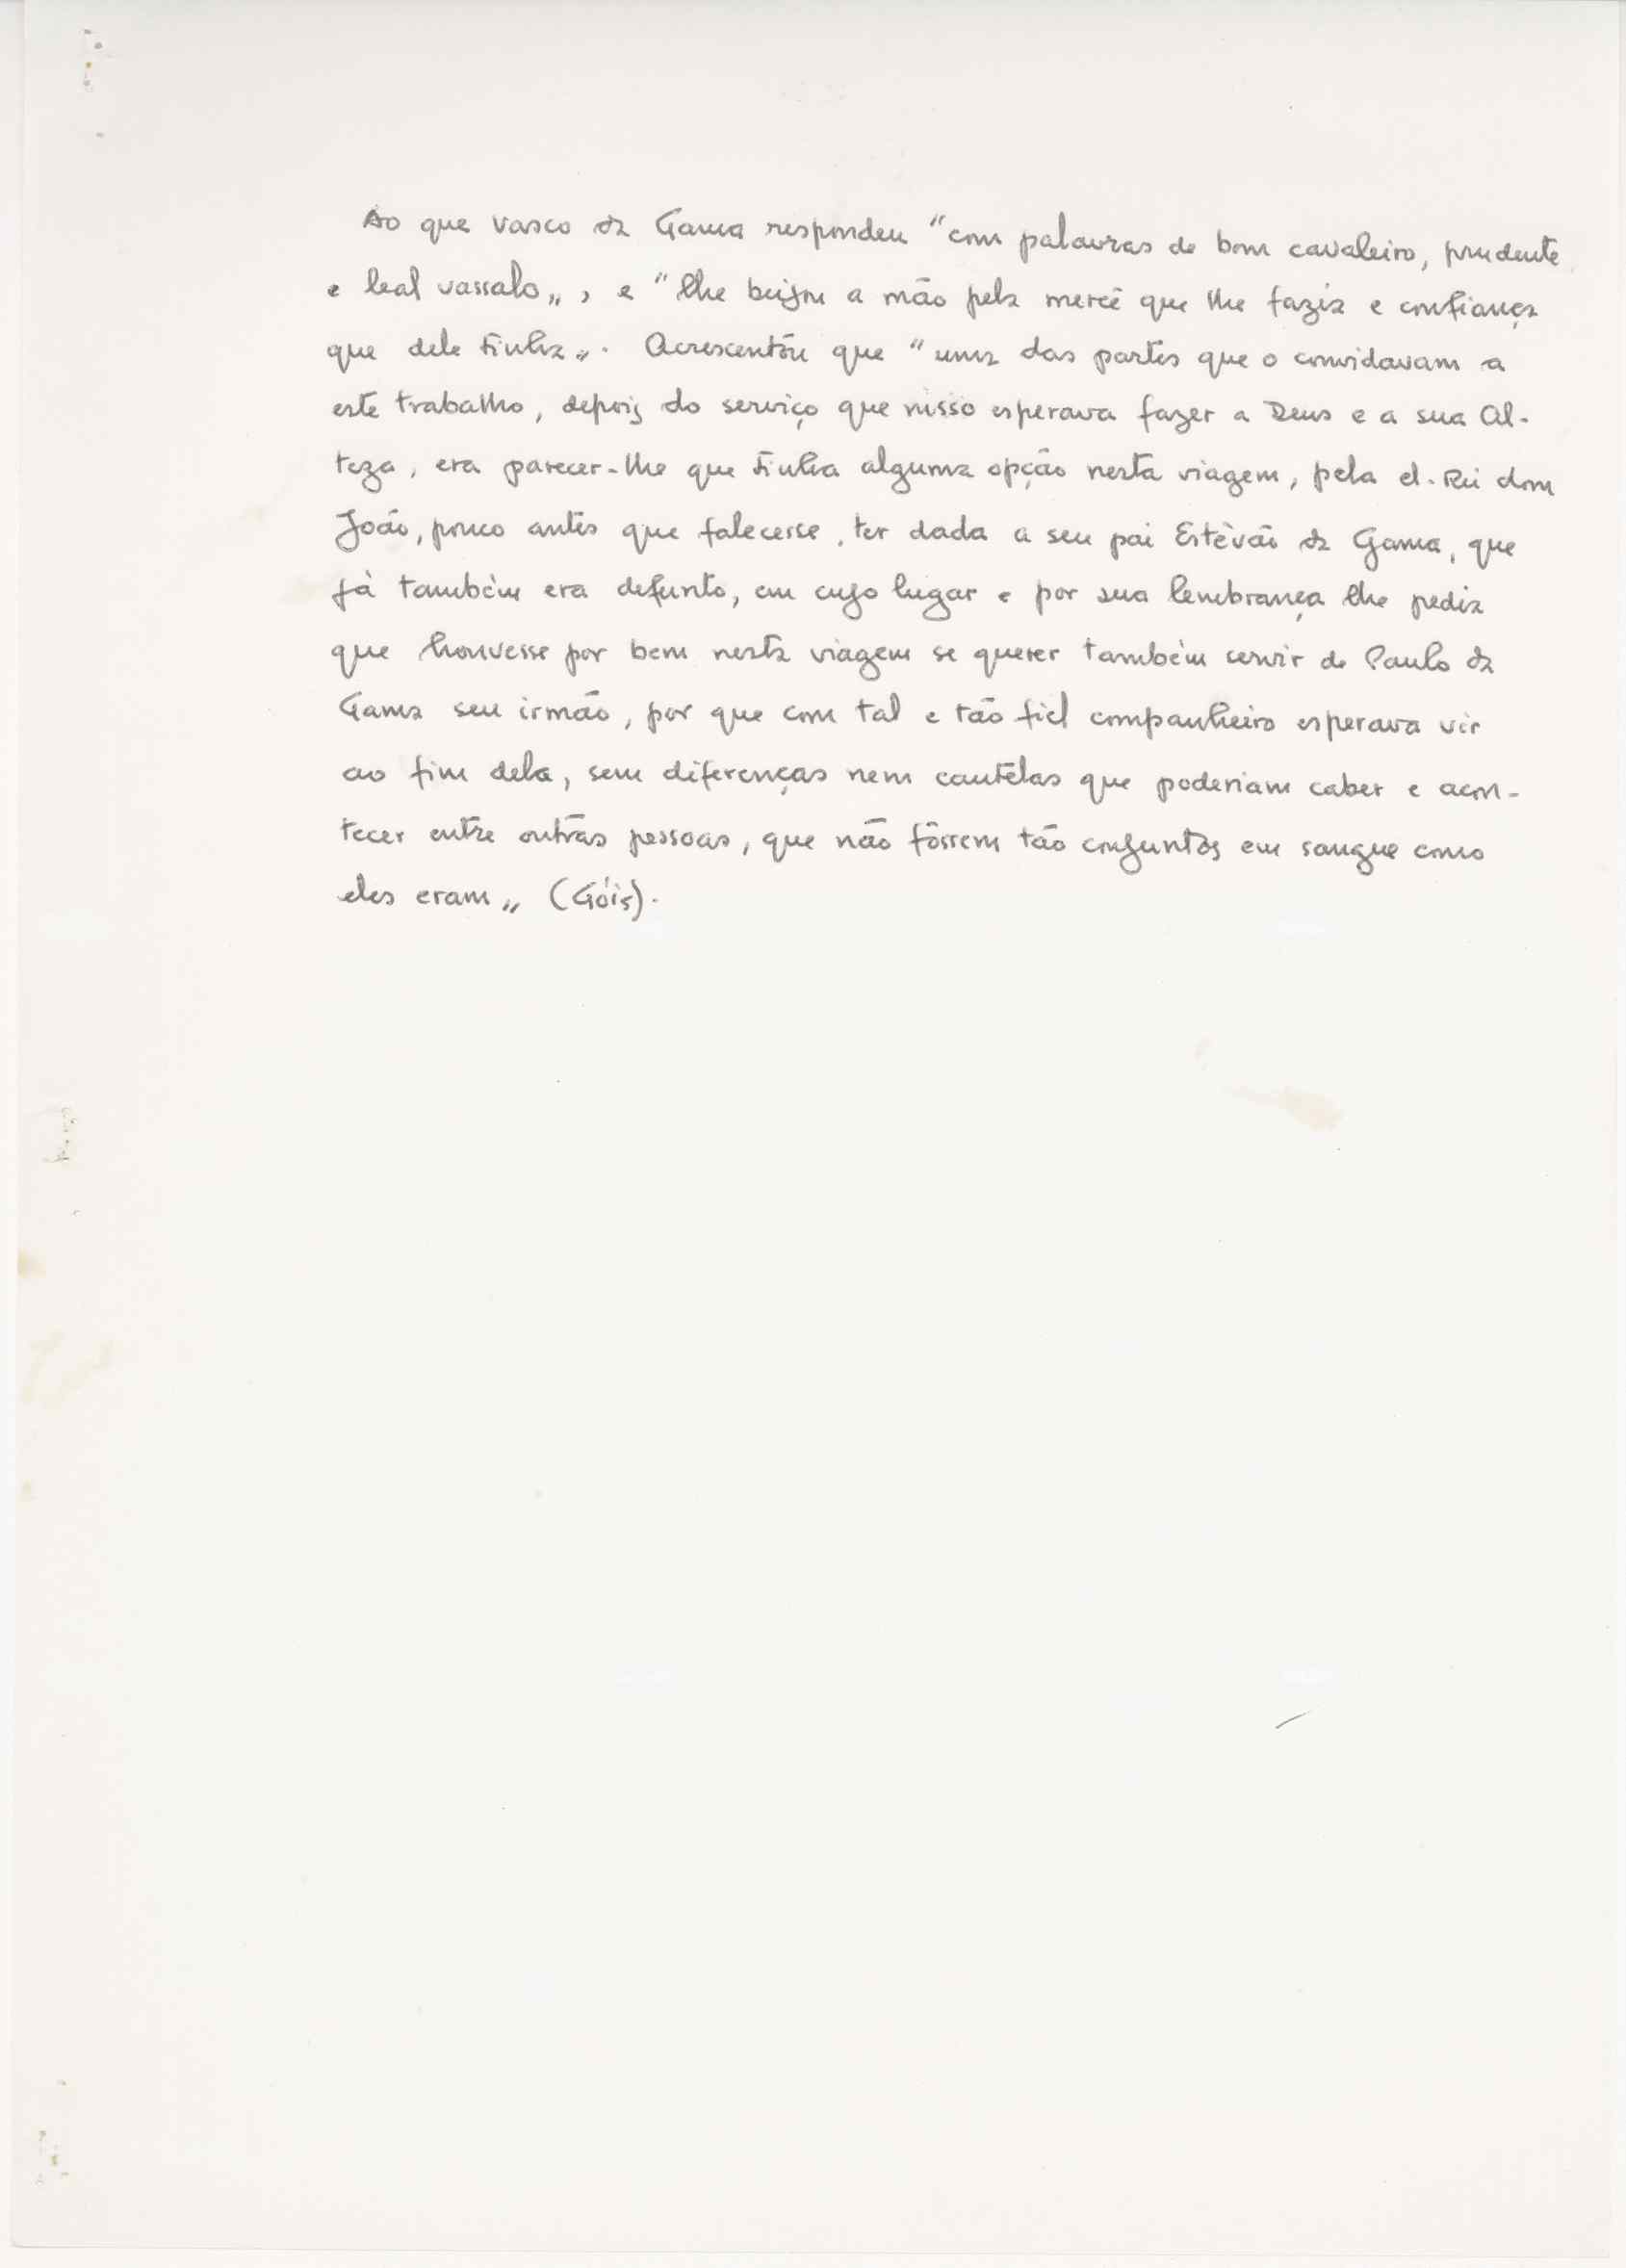 Ao que Vasco da Gama respondeu "com palavras de bom cavaleiro, prudente
e leal vassalo„, e "lhe beijou a mão pela mercê que lhe fazia e confiança
que dele tinha„. Acrescentou que "uma das partes que o convidavam a
este trabalho, depois do serviço que nisso esperava fazer a Deus e a sua Al-
teza, era parecer-lhe que tinha alguma opção nesta viagem, pela el-Rei dom
João, pouco antes que falecesse, ter dada a seu pai Estêvão da Gama, que
já também era defunto, em cujo lugar e por sua lembrança lhe pedia
que houvesse por bem nesta viagem se querer também servir de Paulo da
Gama seu irmão, por que com tal e tão fiel companheiro esperava vir
ao fim dela, sem diferenças nem cautelas que poderiam caber e acon-
tecer entre outras pessoas, que não fôssem tão conjuntos em sangue como
eles eram„ (Góis).